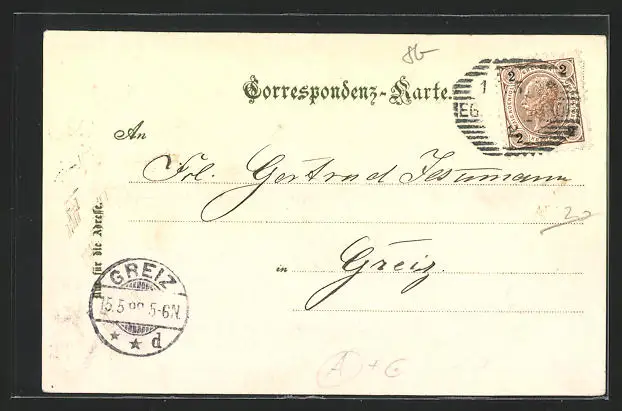 86
Correspondenz-Karte.
2 2
2 2
An
Frl. Gertrud
Nur für die Adresse.
in Greiz.
GREIZ
15.5 5-6N.
★ ★ d
A + G